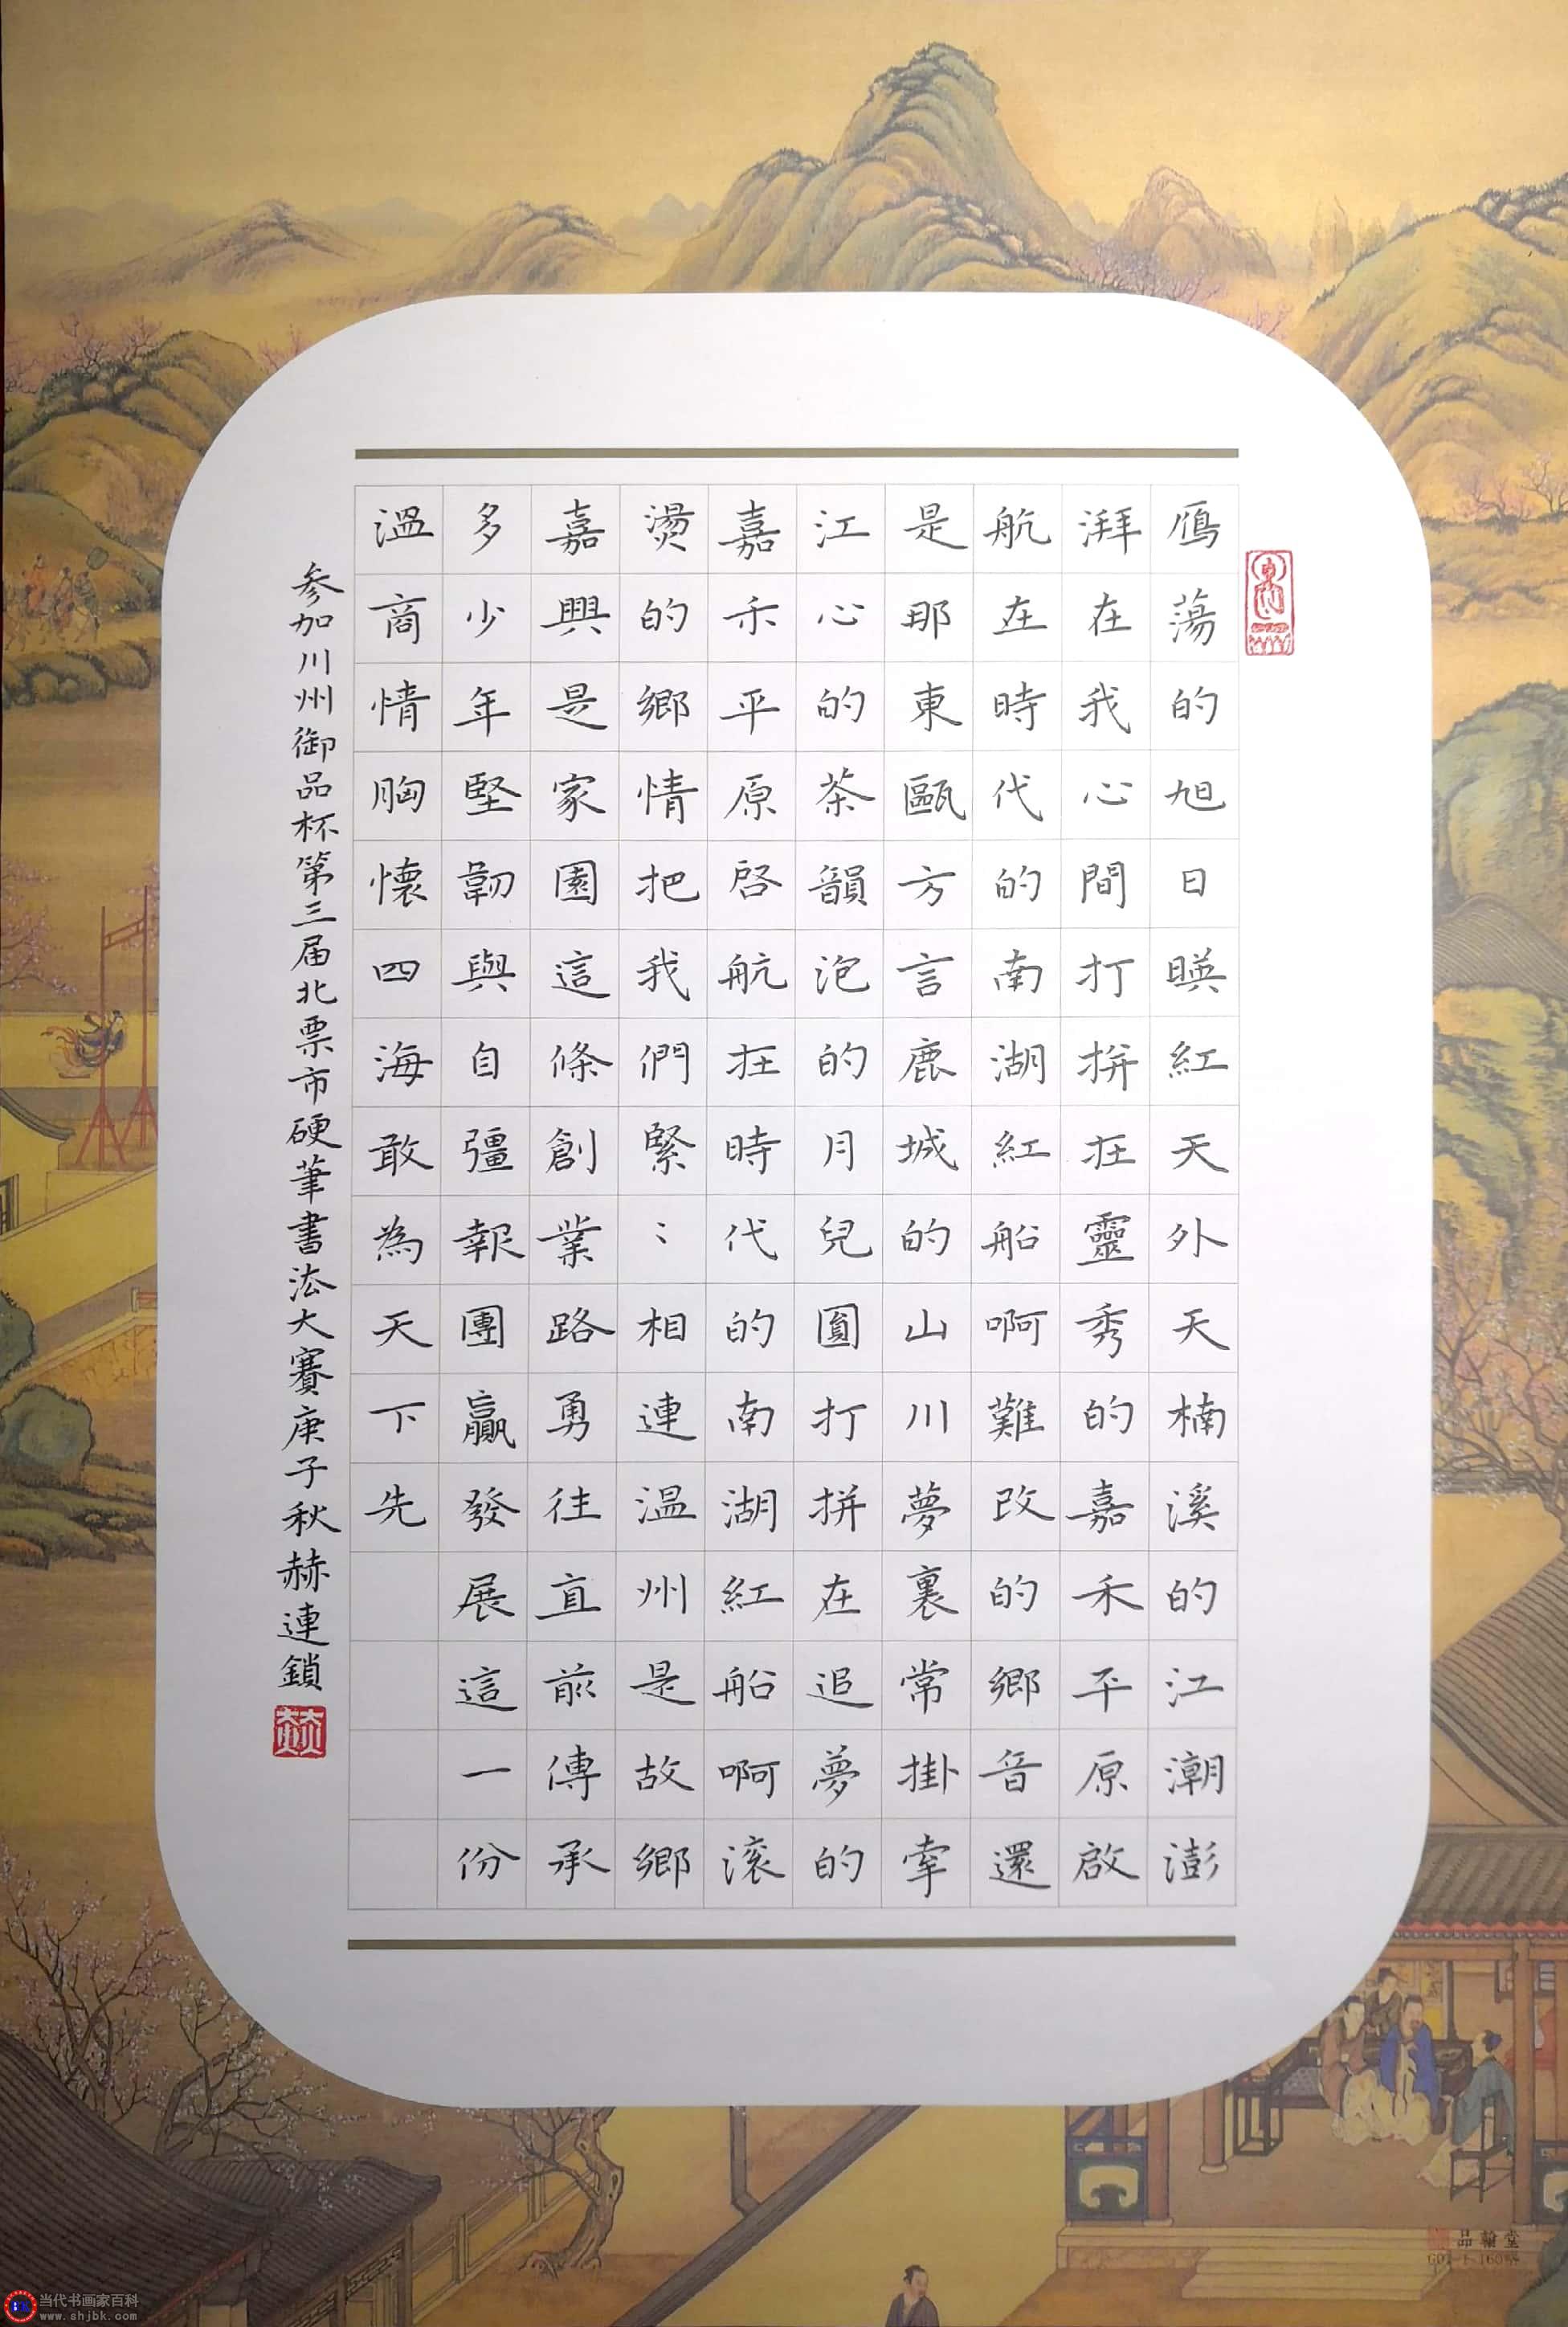 鴈蕩的旭日暎紅天外天楠溪的江潮澎
湃在我心間打拼在靈秀的嘉禾平原啟
航在時代的南湖紅船啊難改的鄉音還
是那東甌方言鹿城的山川夢裏常掛牽
江心的茶韻泡的月兒圓打拼在追夢的
嘉禾平原啓航在時代的南湖紅船啊滚
燙的鄉情把我們緊〻相連溫州是故鄉
嘉興是家園這條創業路勇往直前傳承
多少年堅韌與自彊報團贏發展這一份
溫商情胸懷四海敢為天下先
参加川州御品杯第三届北票市硬筆書法大賽庚子秋赫連鎖
品翰堂
当代书画家百科
www.shjbk.com